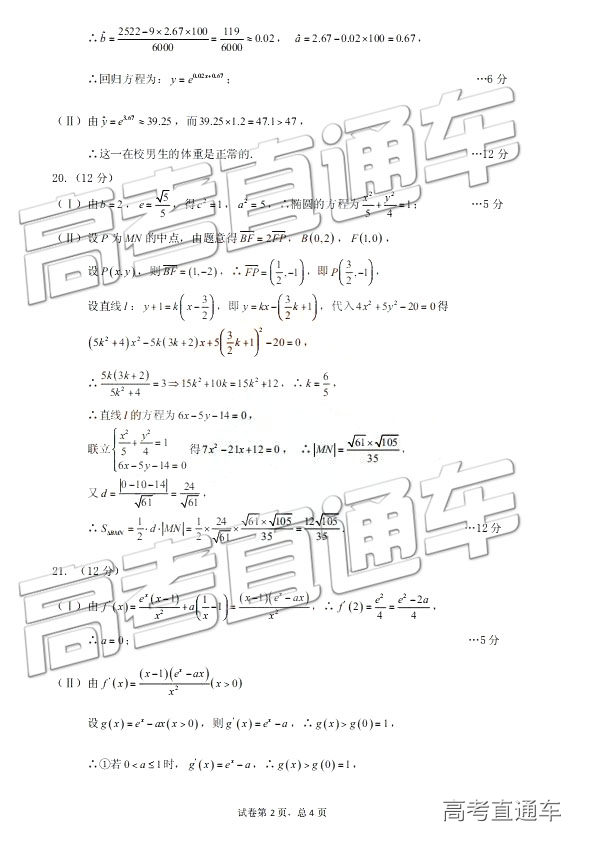 ∴ b̂ = (2522−9×2.67×100)/6000 = 119/6000 ≈ 0.02， â = 2.67−0.02×100 = 0.67，
∴回归方程为：y = e^(0.02x+0.67)； …6 分
(Ⅱ) 由 ŷ = e^3.67 ≈ 39.25，而 39.25×1.2 = 47.1 > 47，
∴这一在校男生的体重是正常的. …12 分
20. (12 分)
(Ⅰ) 由 b = 2，e = √5/5，得 c² = 1，a² = 5，∴椭圆的方程为 x²/5 + y²/4 = 1； …5 分
(Ⅱ) 设 P 为 MN 的中点，由题意得 BF = 2FP，B(0,2)，F(1,0)，
设 P(x,y)，则 BF = (1,−2)，∴ FP = (1/2,−1)，即 P(3/2,−1)，
设直线 l：y+1 = k(x − 3/2)，即 y = kx − (3/2 k + 1)，代入 4x² + 5y² − 20 = 0 得
(5k²+4)x² − 5k(3k+2)x + 5(3/2 k + 1)² − 20 = 0，
∴ 5k(3k+2)/(5k²+4) = 3 ⇒ 15k² + 10k = 15k² + 12，∴ k = 6/5，
∴直线 l 的方程为 6x − 5y − 14 = 0，
联立 { x²/5 + y²/4 = 1 6x − 5y − 14 = 0 得 7x² − 21x + 12 = 0， ∴ |MN| = √61×√105/35，
又 d = |0−10−14|/√61 = 24/√61，
∴ S△BMN = 1/2·d·|MN| = 1/2 × 24/√61 × √61×√105/35 = 12√105/35. …12 分
21. (12 分)
(Ⅰ) 由 f'(x) = e^x(x−1)/x² + a(1/x − 1) = (x−1)(e^x − ax)/x²，∴ f'(2) = e²/4 = (e²−2a)/4，
∴ a = 0； …5 分
(Ⅱ) 由 f'(x) = (x−1)(e^x − ax)/x² (x > 0)
设 g(x) = e^x − ax(x > 0)，则 g'(x) = e^x − a，∴ g(x) > g(0) = 1，
∴①若 0 < a ≤ 1 时，g'(x) = e^x − a，∴ g(x) > g(0) = 1，
试卷第 2 页，总 4 页
高考直通车
高考直通车
高考直通车